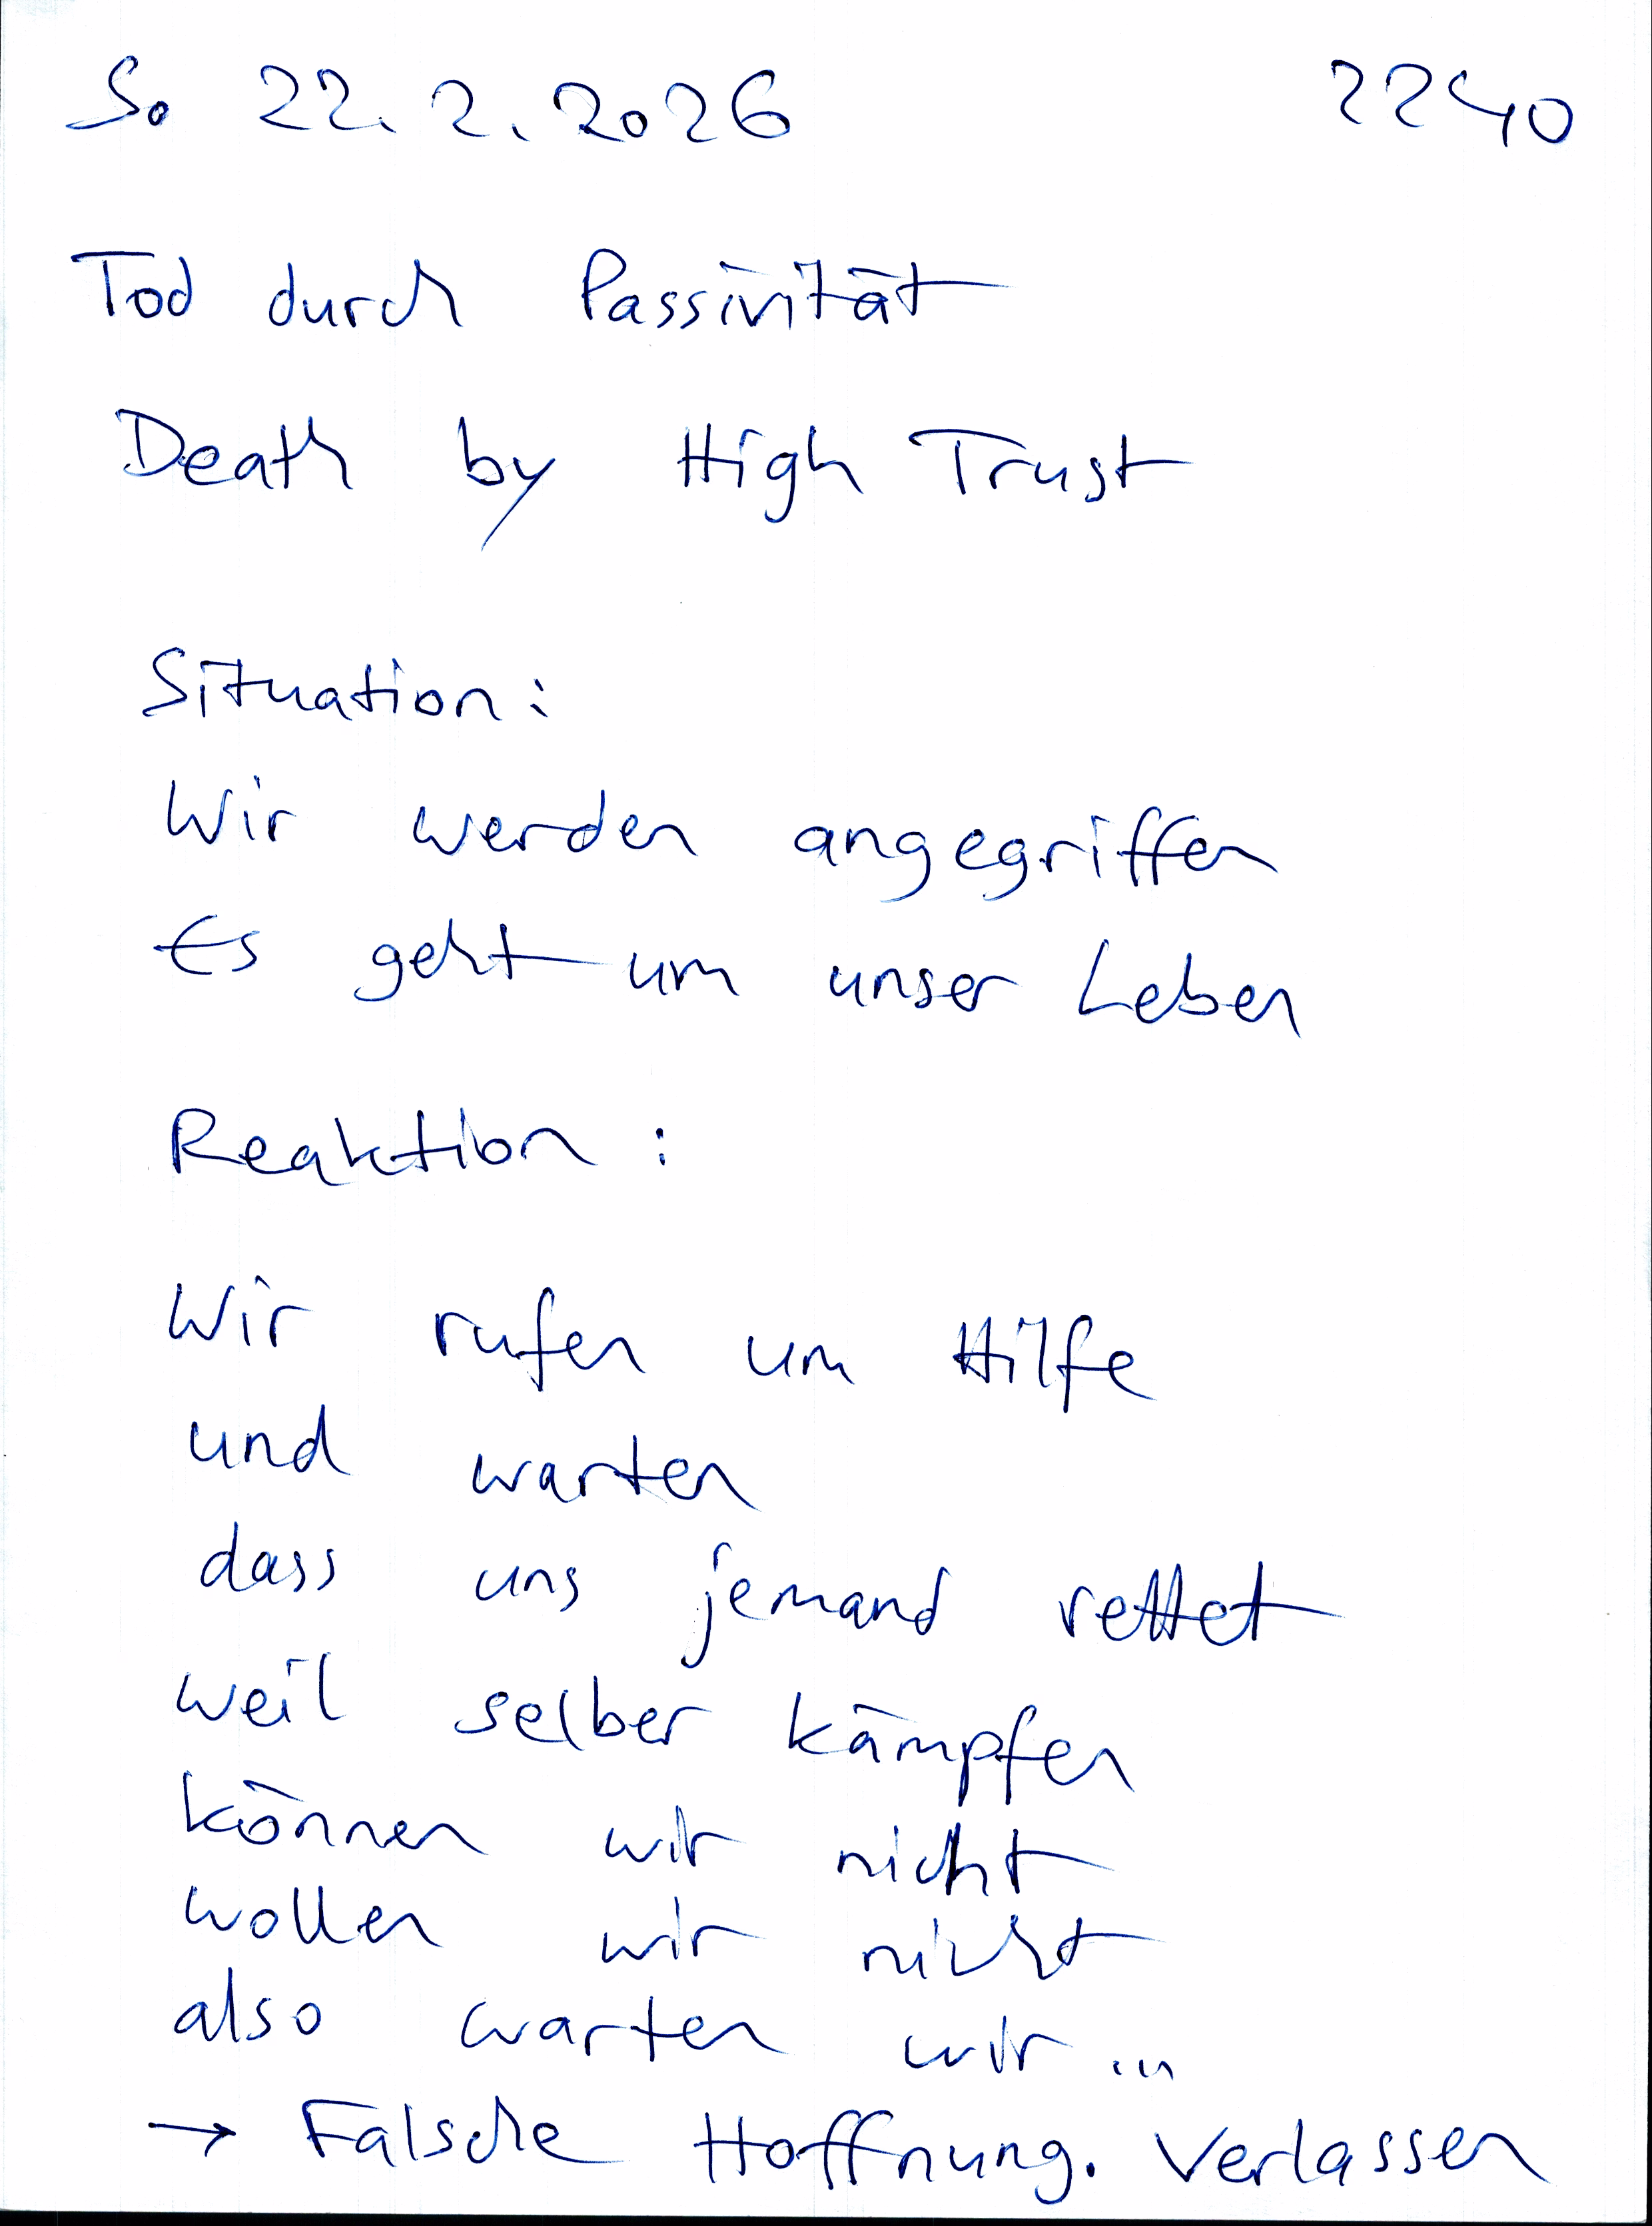 So 22.2.2026 2240
Tod durch Passivität
Death by High Trust
Situation:
Wir werden angegriffen
Es geht um unser Leben
Reaktion:
Wir rufen um Hilfe
und warten
dass uns jemand rettet
weil selber kämpfen
können wir nicht
wollen wir nicht
also warten wir ...
→ Falsche Hoffnung. Verlassen